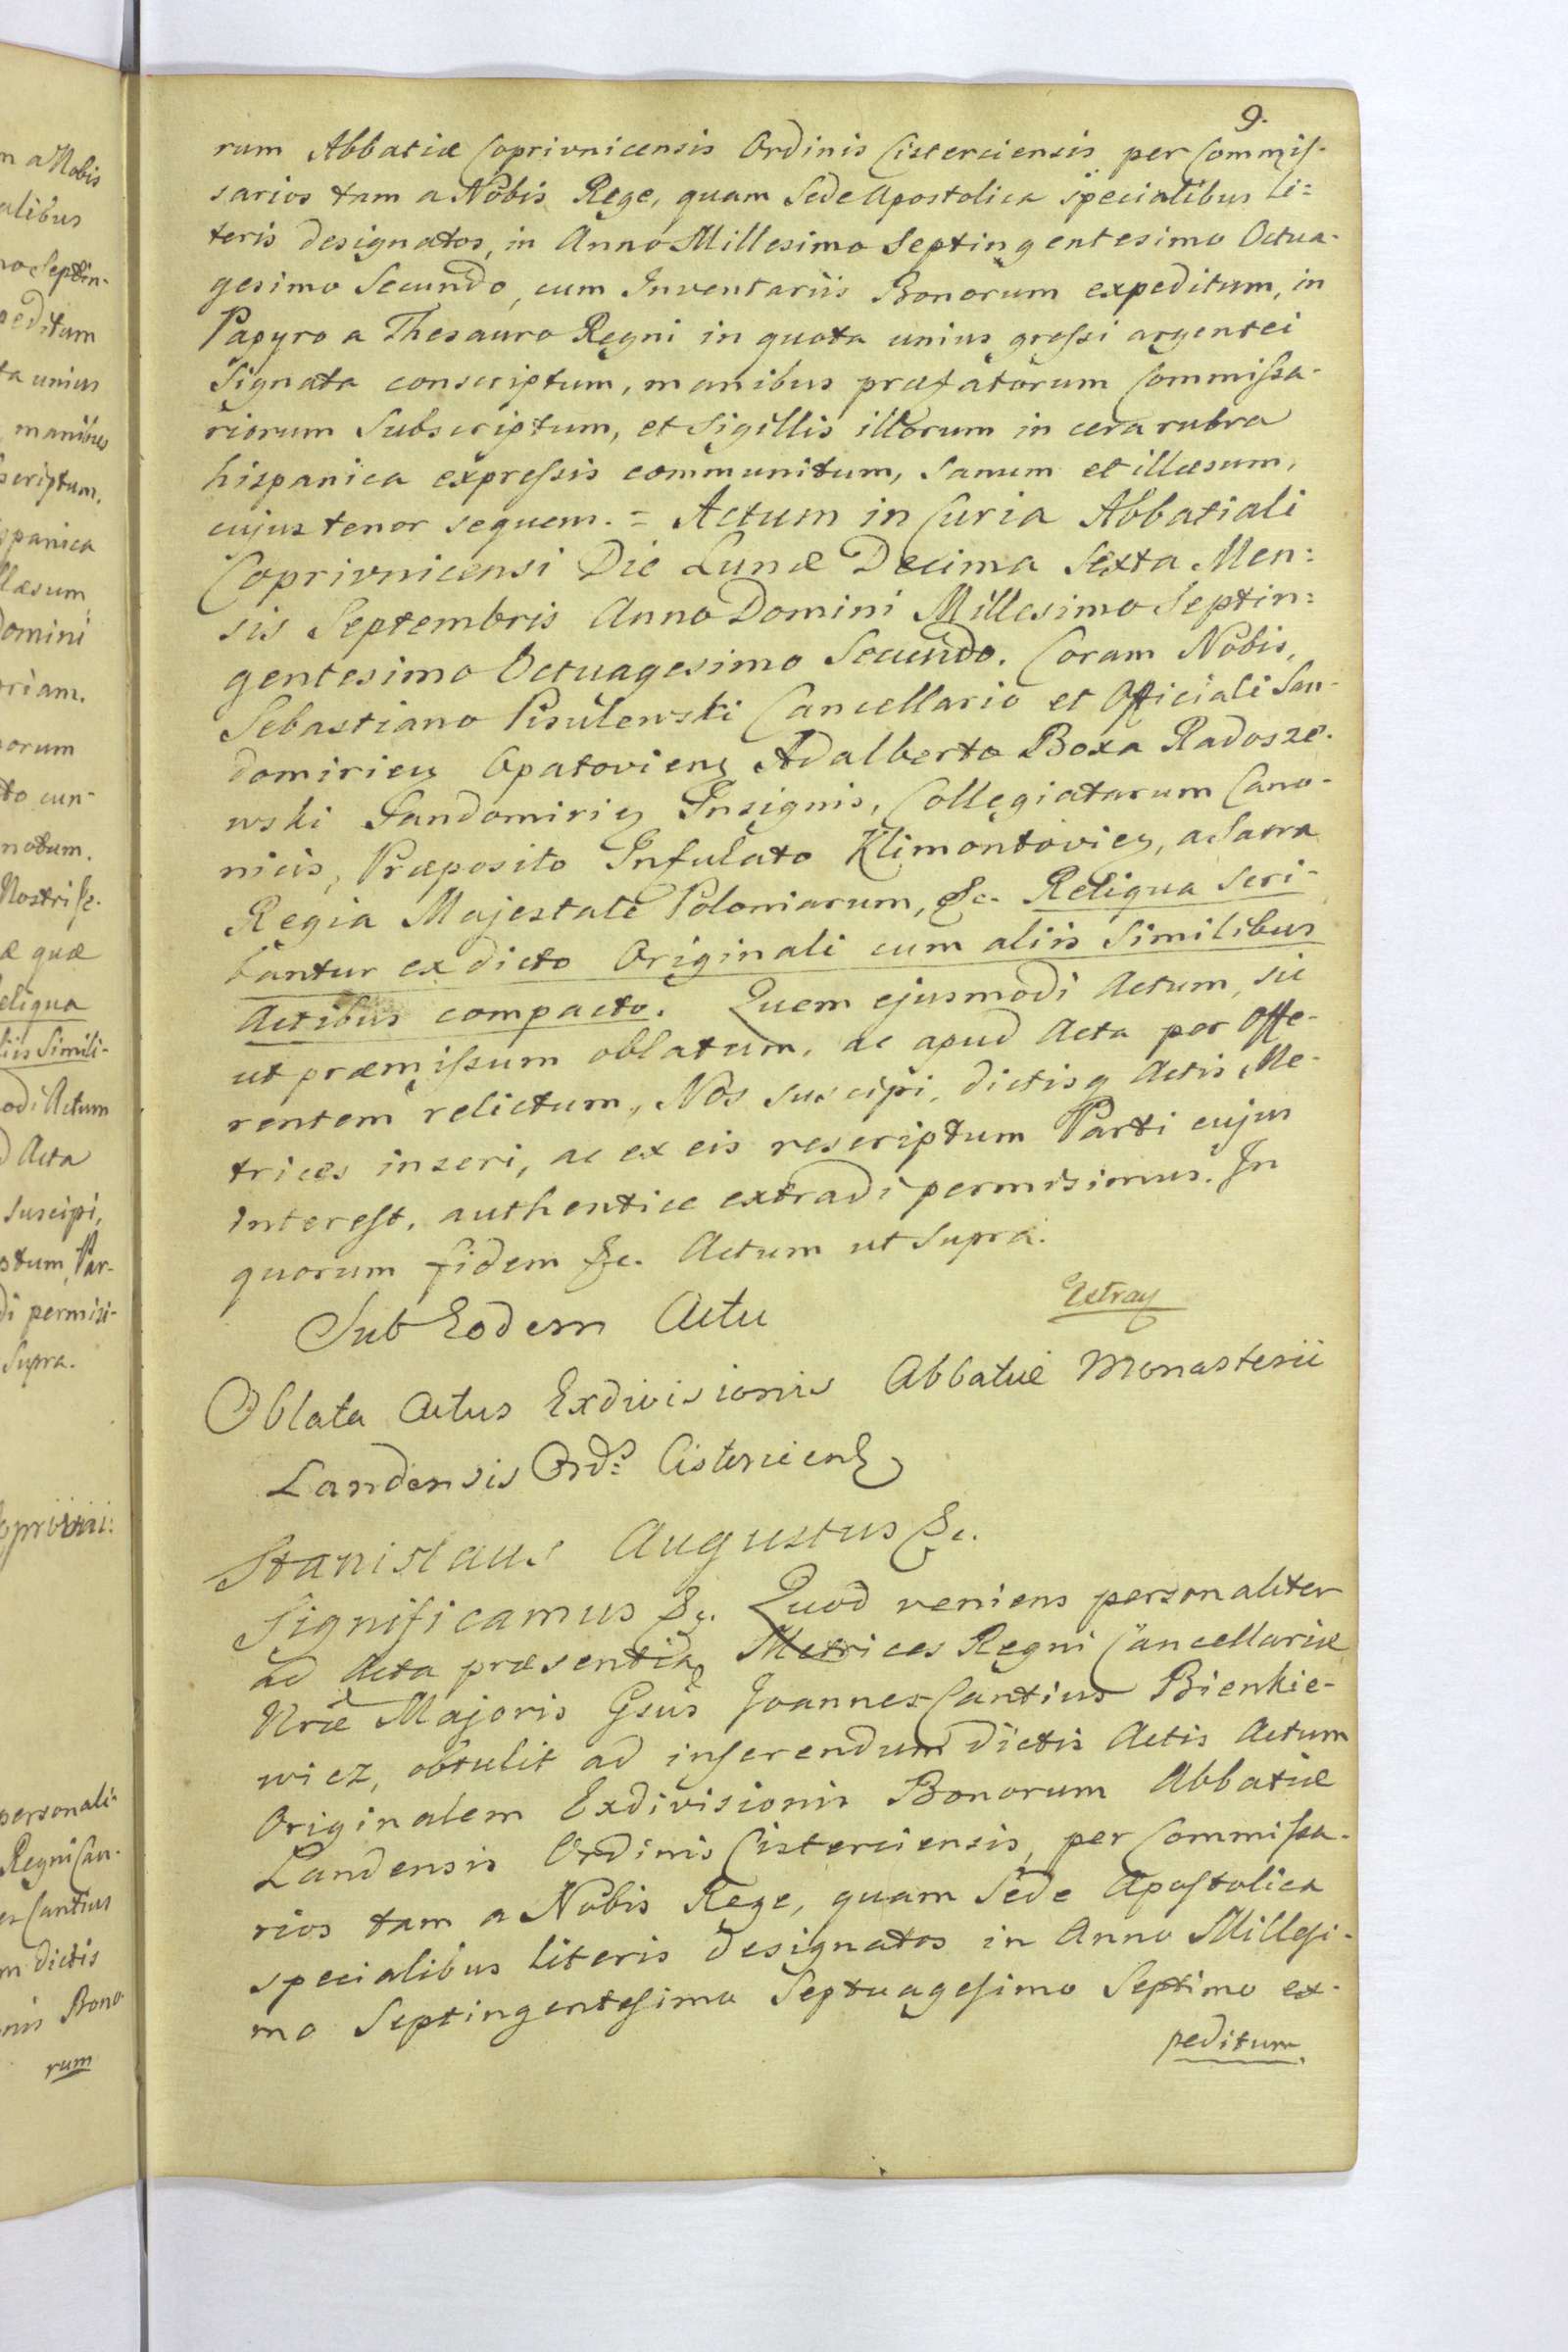 9.
rum Abbatiæ Coprivnicensis Ordinis Cisterciensis per Commis-
sarios tam a Nobis Rege, quam Sede Apostolica specialibus Li=
teris designatos, in Anno Millesimo Septingentesimo Octua-
gesimo Secundo, cum Inventariis Bonorum expeditum, in
Papyro a Thesauro Regni in quota unius grossi argentei
Signata conscriptum, manibus præfatorum Commissa-
riorum Subscriptum, et Sigillis illorum in cera rubra
hispanica expressis communitum, Sanum et illæsum,
cujus tenor sequem. = Actum in Curia Abbatiali
Coprivnicensi Die Lunæ Decima Sexta Men:
sis Septembris Anno Domini Millesimo Septin:
gentesimo Octuagesimo Secundo. Coram Nobis,
Sebastiano Pisulewski Cancellario et Officiali San-
domirien Opatovien Adalberto Boxa Radosze-
wski Sandomirien Insignis, Collegiatarum Cano-
nicis, Præposito Infulato Klimontovien, a Sacra
Regia Majestate Poloniarum, &c. Reliqua Scri-
bantur ex dicto Originali cum aliis Similibus
Actibus compacto. Quem ejusmodi Actum, sic
ut præmissum oblatum, ac apud Acta per Offe-
rentem relictum, Nos suscipi, dictisq Actis Me-
trices inseri, ac ex eis rescriptum Parti cujus
interest, authentice extradi permisimus. In
quorum fidem &c. Actum ut Supra.
Extray
Sub Eodem Actu
Oblata Actus Exdivisionis Abbatiæ Monasterii
Landensis Ord: Cisterciens
Stanislaus Augustus &c.
Significamus &c. Quod veniens personaliter
ad Acta præsentia Metrices Regni Cancellariæ
Nræ Majoris Gsus Joannes Cantius Bienkie-
wicz, obtulit ad inserendum dictis Actis Actum
Originalem Exdivisionis Bonorum Abbatiæ
Landensis Ordinis Cisterciensis, per Commissa-
rios tam a Nobis Rege, quam Sede Apostolica
specialibus Literis designatos in Anno Millesi-
mo Septingentesimo Septuagesimo Septimo ex-
peditum.